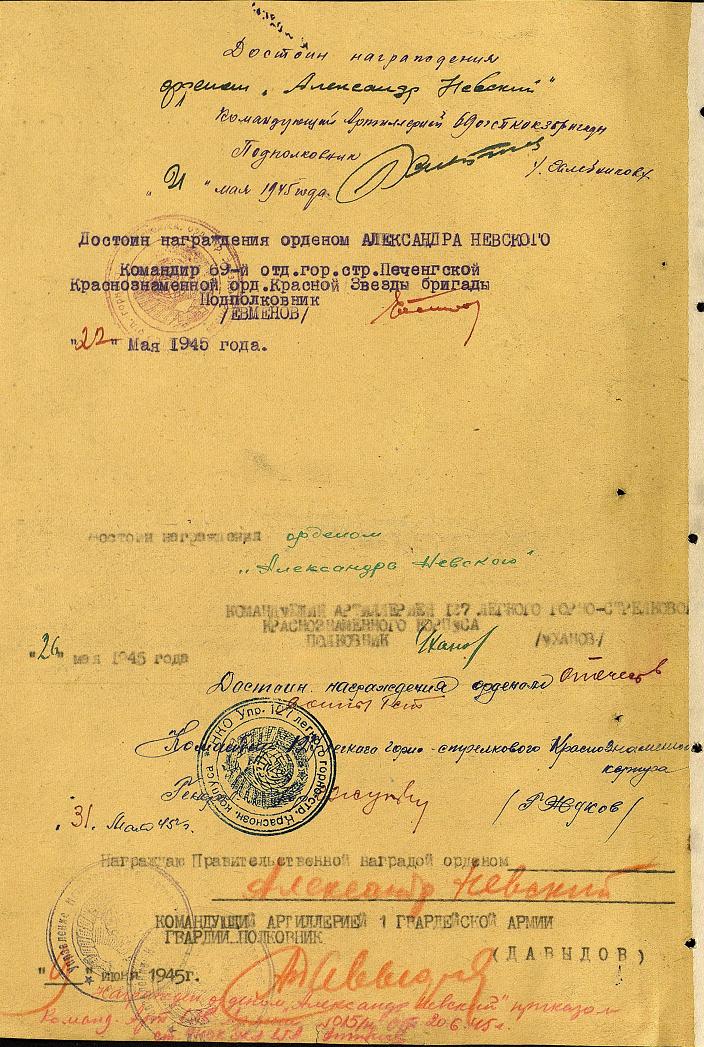 Достоин награждения
орденом „Александр Невский"
Командующий Артиллерией 69
Подполковник
" 21 " мая 1945 года
Достоин награждения орденом АЛЕКСАНДРА НЕВСКОГО
Командир 69-й отд.гор.стр.Печенгской
Краснознаменной орд.Красной Звезды бригады
Подполковник
/ЕВМЕНОВ/
"22" Мая 1945 года.
Достоин награждения орденом
„Александра Невского"
КОМАНДУЮЩИЙ АРТИЛЛЕРИЕЙ 127 ЛЕГКОГО ГОРНО-СТРЕЛКОВО
КРАСНОЗНАМЕННОГО КОРПУСА
ПОЛКОВНИК /УХАНОВ/
"26" мая 1945 года
Достоин награждения орденом Отечеств
войны I ст
НКО Упр. 127 легкого горно-стр. Краснозн. корпуса
легкого горно-стрелкового Краснознаменного
корпуса
Ген /Г Жуков/
" 31. Мая 45 г.
Награждаю Правительственной наградой орденом
Александр Невский
КОМАНДУЮЩИЙ АРТИЛЛЕРИЕЙ 1 ГВАРДЕЙСКОЙ АРМИИ
ГВАРДИИ ПОЛКОВНИК
(ДАВЫДОВ)
июня 1945г.
Награжден орденом „Александр Невский" приказом
Команд. Арт 015/н от 20.6.45 г.